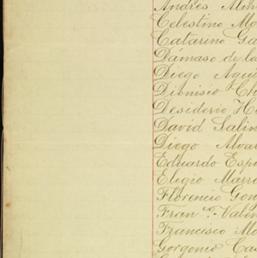 Andrés
Celestino
Catarino
Dámaso de la
Diego
Dionisio
Desiderio
David Salin
Diego Alva
Eduardo Esp
Eligio
Florencio Gon
Fran.co Valin
Francisco Mo
Gorgonio Ca